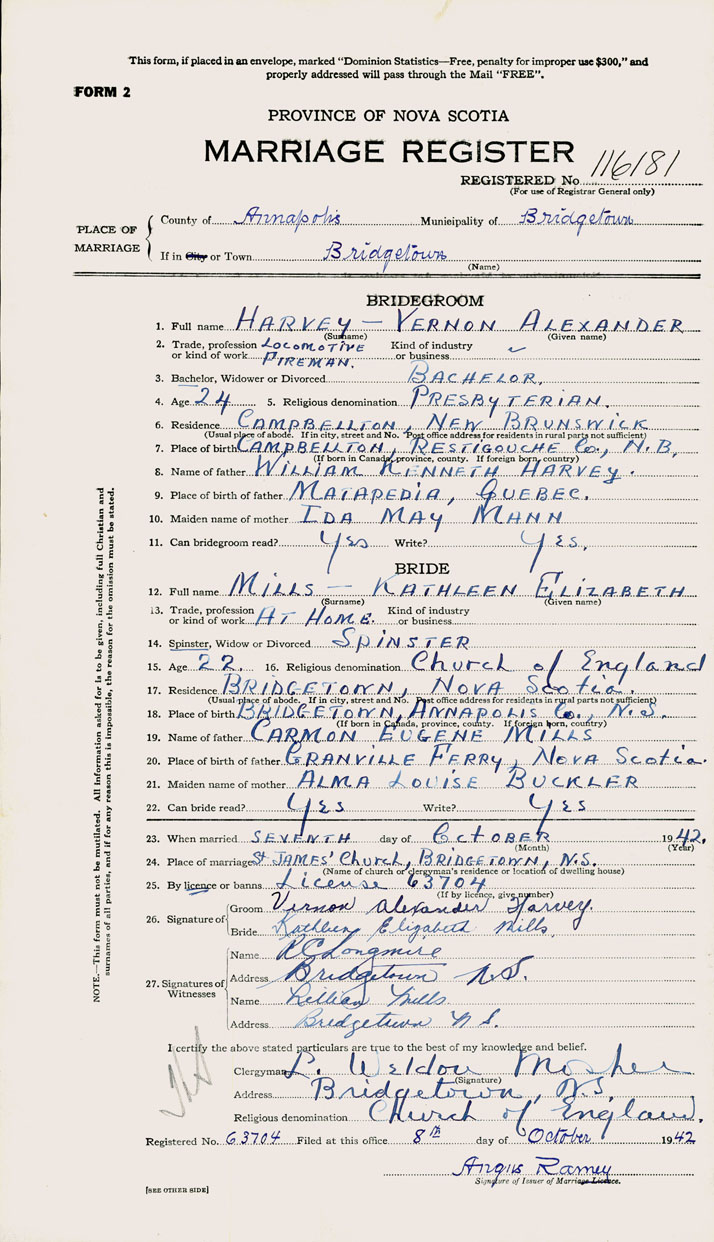 This form, if placed in an envelope, marked "Dominion Statistics—Free, penalty for improper use $300," and
properly addressed will pass through the Mail "FREE".
FORM 2
PROVINCE OF NOVA SCOTIA
MARRIAGE REGISTER
REGISTERED No. 116181
(For use of Registrar General only)
PLACE OF MARRIAGE
County of Annapolis Municipality of Bridgetown
If in City or Town Bridgetown
(Name)
BRIDEGROOM
1. Full name HARVEY — VERNON ALEXANDER
(Surname) (Given name)
2. Trade, profession or kind of work LOCOMOTIVE FIREMAN. Kind of industry or business
3. Bachelor, Widower or Divorced BACHELOR.
4. Age 24 5. Religious denomination PRESBYTERIAN.
6. Residence CAMPBELLTON, NEW BRUNSWICK
(Usual place of abode. If in city, street and No. Post office address for residents in rural parts not sufficient)
7. Place of birth CAMPBELLTON, RESTIGOUCHE Co., N.B.
(If born in Canada, province, county. If foreign born, country)
8. Name of father WILLIAM KENNETH HARVEY.
9. Place of birth of father MATAPEDIA, QUEBEC.
10. Maiden name of mother IDA MAY MANN
11. Can bridegroom read? Yes Write? Yes,
BRIDE
12. Full name MILLS — KATHLEEN ELIZABETH
(Surname) (Given name)
13. Trade, profession or kind of work AT HOME. Kind of industry or business
14. Spinster, Widow or Divorced SPINSTER
15. Age 22. 16. Religious denomination Church of England
17. Residence BRIDGETOWN, NOVA SCOTIA.
(Usual place of abode. If in city, street and No. Post office address for residents in rural parts not sufficient)
18. Place of birth BRIDGETOWN, ANNAPOLIS Co., N.S.
(If born in Canada, province, county. If foreign born, country)
19. Name of father CARMON EUGENE MILLS
20. Place of birth of father GRANVILLE FERRY, NOVA SCOTIA.
21. Maiden name of mother ALMA LOUISE BUCKLER
22. Can bride read? YES Write? YES
23. When married SEVENTH day of OCTOBER 1942.
(Month) (Year)
24. Place of marriage St JAMES' Church, BRIDGETOWN, N.S.
(Name of church or clergyman's residence or location of dwelling house)
25. By licence or banns License 63704
(If by licence, give number)
26. Signature of
Groom Vernon Alexander Harvey.
Bride Kathleen Elizabeth Mills.
27. Signatures of Witnesses
Name R C Longmire
Address Bridgetown N.S.
Name Lillian Mills.
Address Bridgetown N S.
I certify the above stated particulars are true to the best of my knowledge and belief.
Clergyman L. Weldon Mosher
(Signature)
Address Bridgetown, N.S.
Religious denomination Church of England.
Registered No. 63704 Filed at this office 8th day of October 1942
Angus Ramey
Signature of Issuer of Marriage Licence.
[SEE OTHER SIDE]
NOTE.—This form must not be mutilated. All information asked for is to be given, including full Christian and
surnames of all parties, and if for any reason this is impossible, the reason for the omission must be stated.